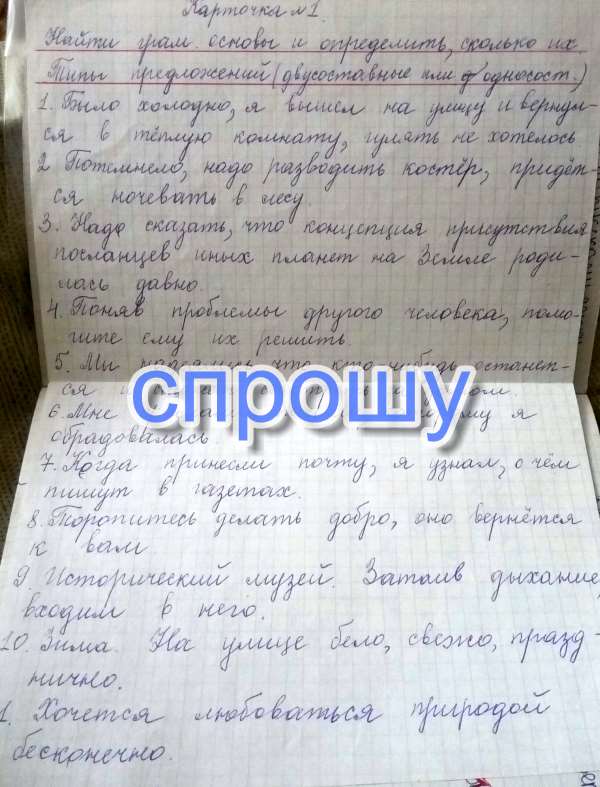 Карточка №1.
Найти грам. основы и определить, сколько их
Типы предложений (двусоставные или односост.)
1. Было холодно, я вышел на улицу и вернул-
ся в тёплую комнату, гулять не хотелось
2 Потемнело, надо разводить костёр, придёт-
ся ночевать в лесу.
3. Надо сказать, что концепция присутствия
посланцев иных планет на Земле роди-
лась давно.
4. Поняв проблемы другого человека, помо-
гите ему их решить.
5. Мы что кто-нибудь останет-
ся
спрошу
6. Мне я
обрадовалась.
7. Когда принесли почту, я узнал, о чём
пишут в газетах.
8. Торопитесь делать добро, оно вернётся
к вам
9. Исторический музей. Затаив дыхание,
входим в него.
10. Зима. На улице бело, свежо, празд-
нично.
1. Хочется любоваться природой
бесконечно.